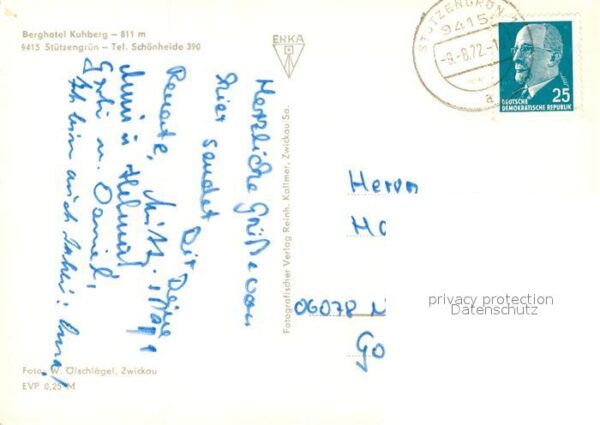 Berghotel Kuhberg — 811 m
9415 Stützengrün — Tel. Schönheide 390
ERKA
STÜTZENGRÜN
9415
-9.-8.72-1
a
DEUTSCHE
DEMOKRATISCHE REPUBLIK
25
Herzliche Grüße von
hier sendet Dir Deine
Renate, Mutti,
u. Helmut
u. Daniel.
Ich bin auch dabei:
Fotografischer Verlag Reinh. Kallmer, Zwickau Sa.
Herrn
HO
06078
Go
privacy protection
Datenschutz
Foto: W. Ölschlägel, Zwickau
EVP 0,25 M